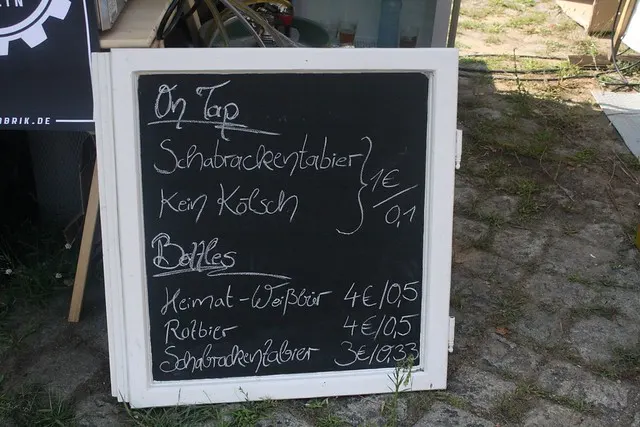 BRIK.DE
On Tap
Schabrackentabier
Kein Kölsch
1€/0,1
Bottles
Heimat-Weißbür 4€/0,5
Rotbier 4€/0,5
Schabrackentabier 3€/0,33